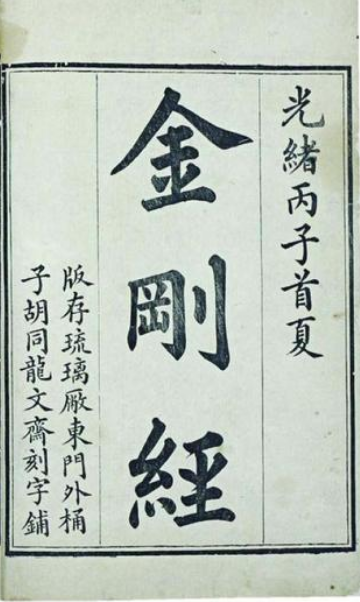 光緒丙子首夏
金剛經
版存琉璃廠東門外桶
子胡同龍文齋刻字鋪